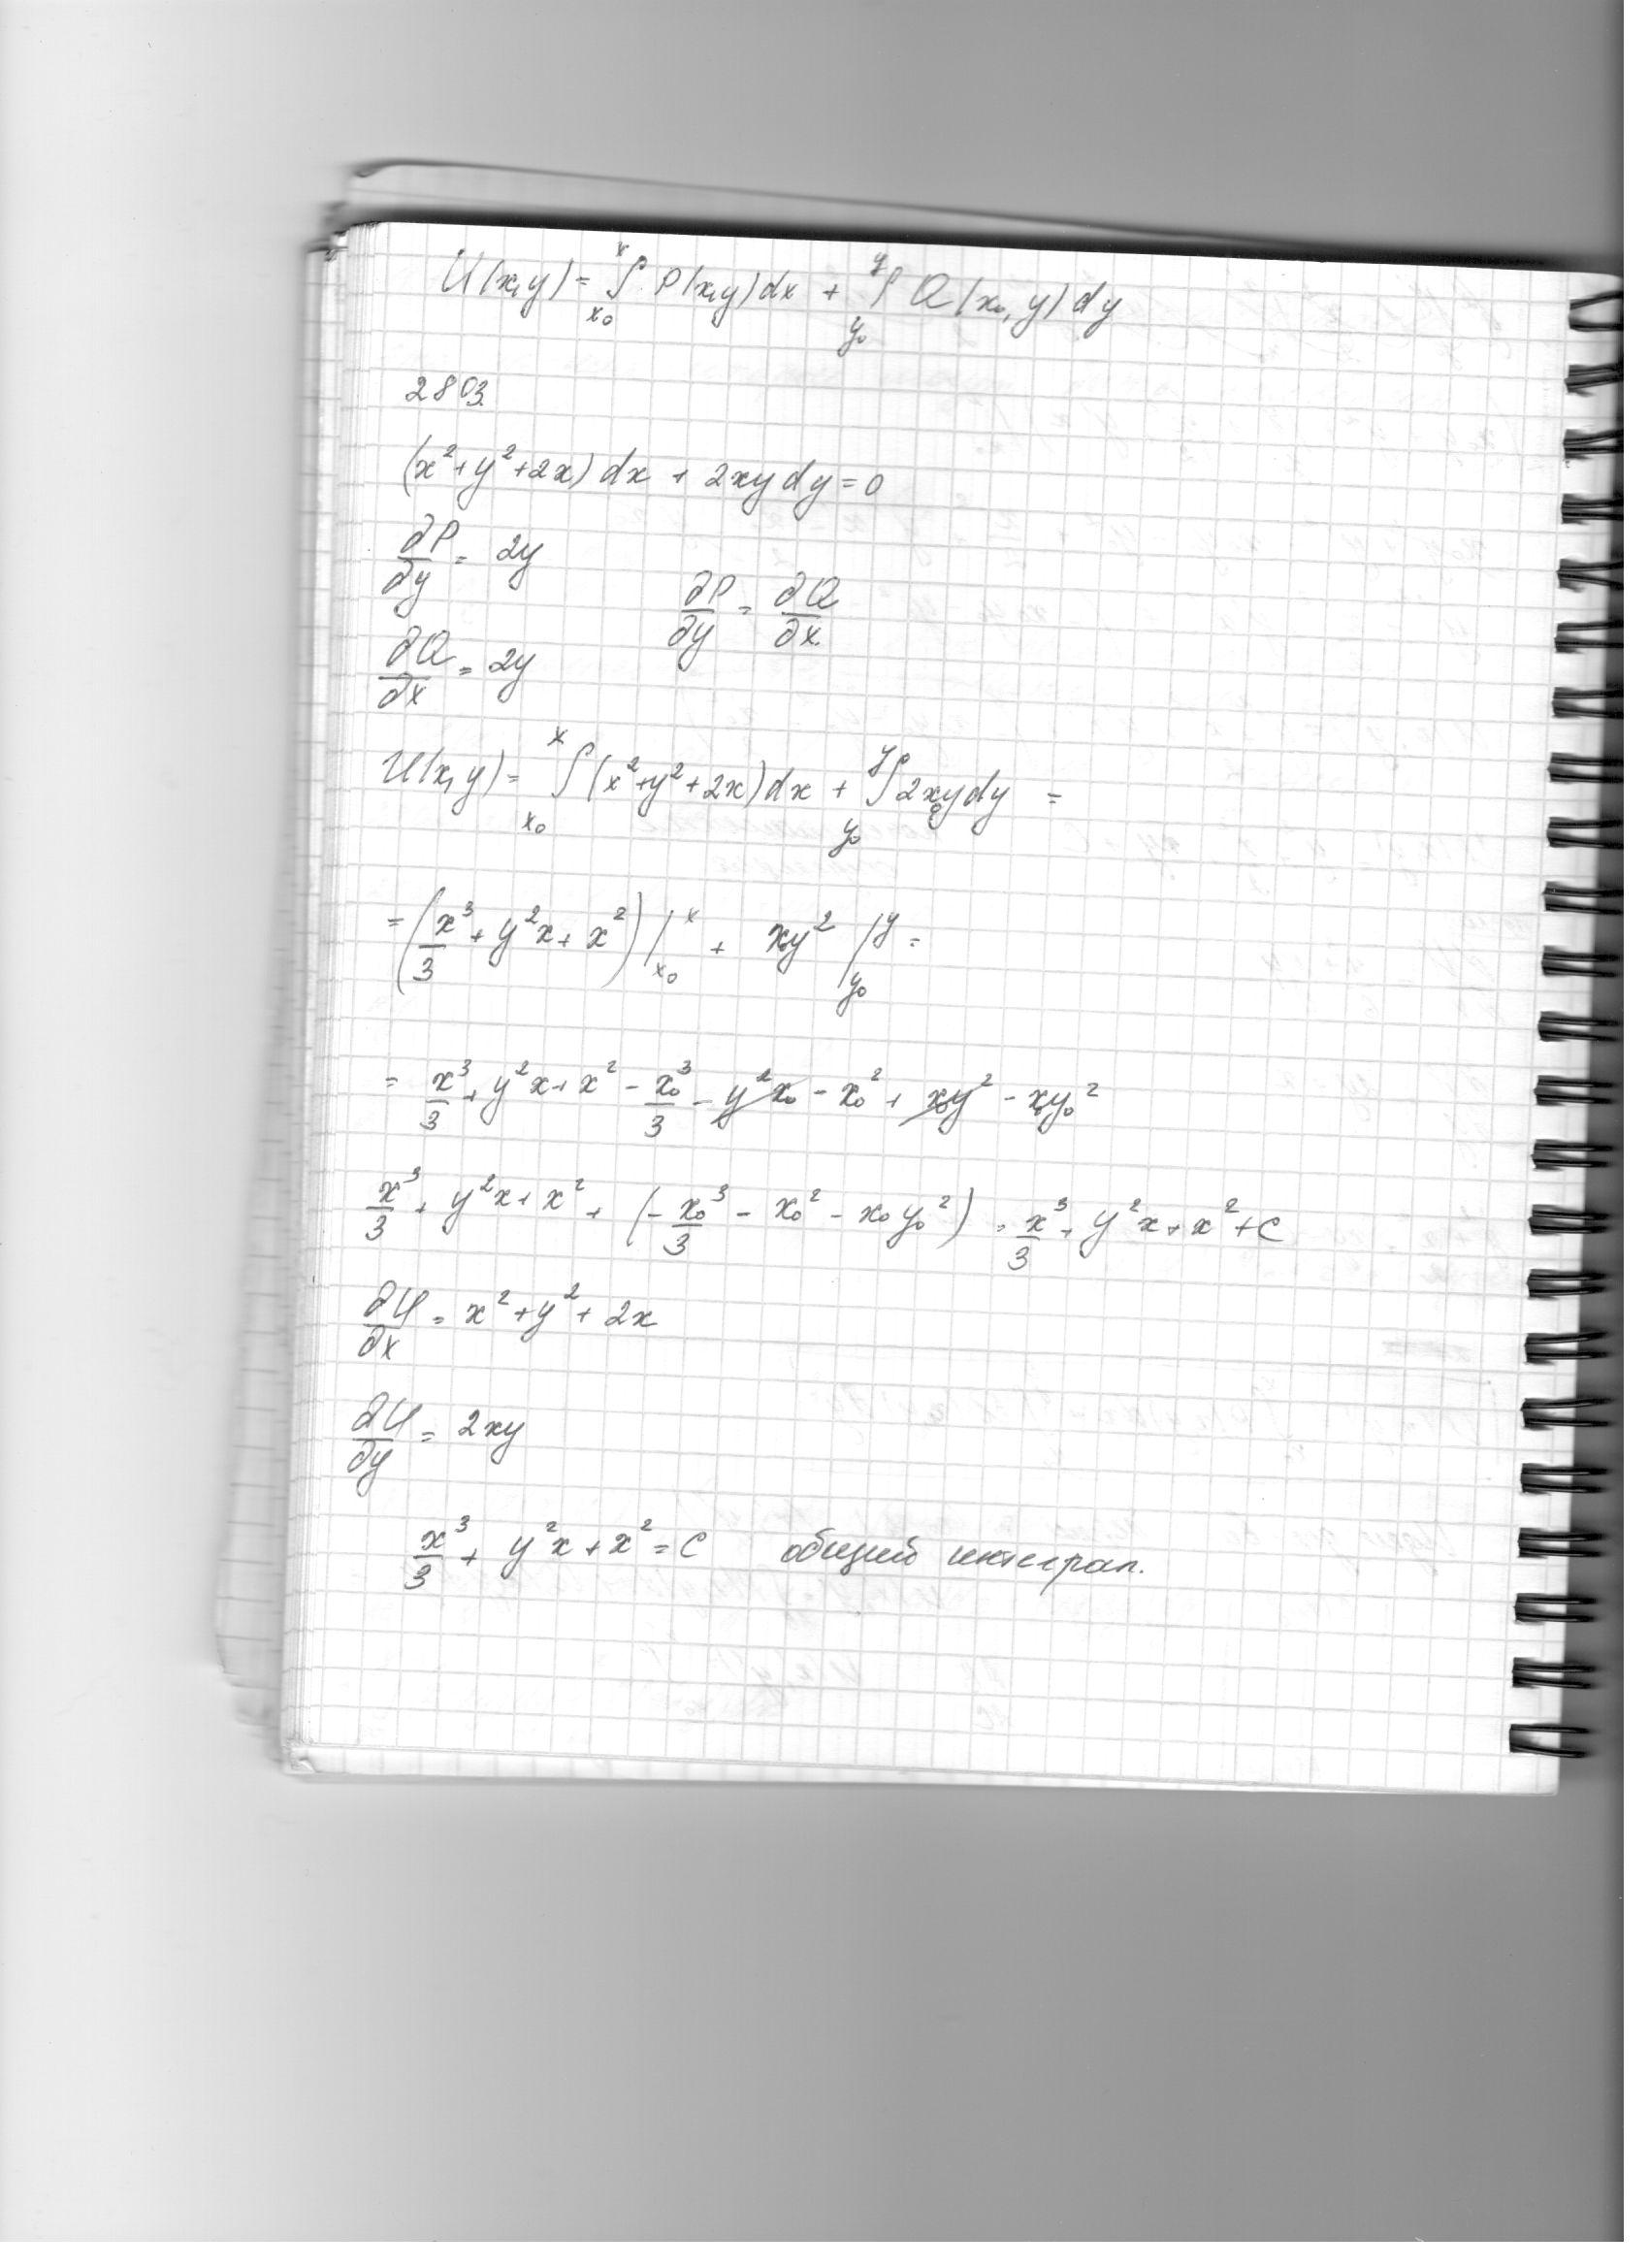 U(x,y) = ∫_{x₀}^{x} P(x,y)dx + ∫_{y₀}^{y} Q(x₀,y)dy
2803.
(x²+y²+2x)dx + 2xydy = 0
∂P/∂y = 2y
∂P/∂y = ∂Q/∂x
∂Q/∂x = 2y
U(x,y) = ∫_{x₀}^{x} (x²+y²+2x)dx + ∫_{y₀}^{y} 2x₀ydy =
= (x³/3 + y²x + x²)|_{x₀}^{x} + x₀y²|_{y₀}^{y} =
= x³/3 + y²x + x² - x₀³/3 - y²x₀ - x₀² + x₀y² - x₀y₀²
x³/3 + y²x + x² + (-x₀³/3 - x₀² - x₀y₀²) = x³/3 + y²x + x² + C
∂U/∂x = x² + y² + 2x
∂U/∂y = 2xy
x³/3 + y²x + x² = C общий интеграл.